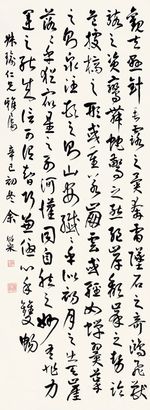 觀夫懸針垂露之異奔雷墜石之奇鴻飛獸
駭之姿鸞舞蛇驚之態絕岸頹峯之勢臨
危據槁之形或重若崩雲或輕如蟬翼導
之則泉注頓之則山安纖纖乎似初月之出天崖
落落乎猶眾星之列河漢同自然之妙有非力
運之能成信可謂智巧兼優心手雙暢
仁兄雅屬 辛巳初冬 余紹宋